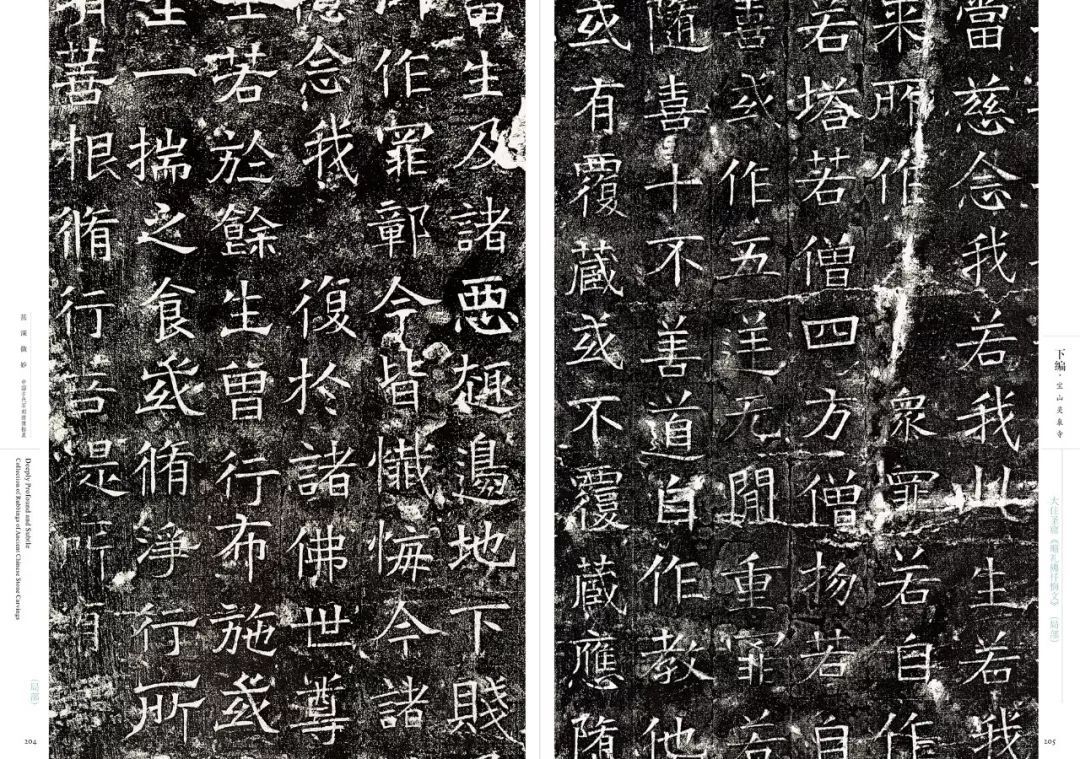 下编·宝山灵泉寺
大住圣窟《略礼佛忏悔文》（局部）
205
當慈念我若我此生若我
来所作衆罪若自作
若塔若僧四方僧物若自
喜或作五逆无間重罪若
隨喜十不善道自作教他
或有覆蔵或不覆蔵應堕
畜生及諸惡趣邊地下賤
所作罪鄣今皆懺悔今諸
憶念我復於諸佛世尊
生若於餘生曾行布施或
至一揣之食或脩淨行所
有善根脩行菩提所有
甚深微妙
Deeply Profound and Subtle
Collection of Rubbings of Ancient Chinese Stone Carvings
（局部）
204